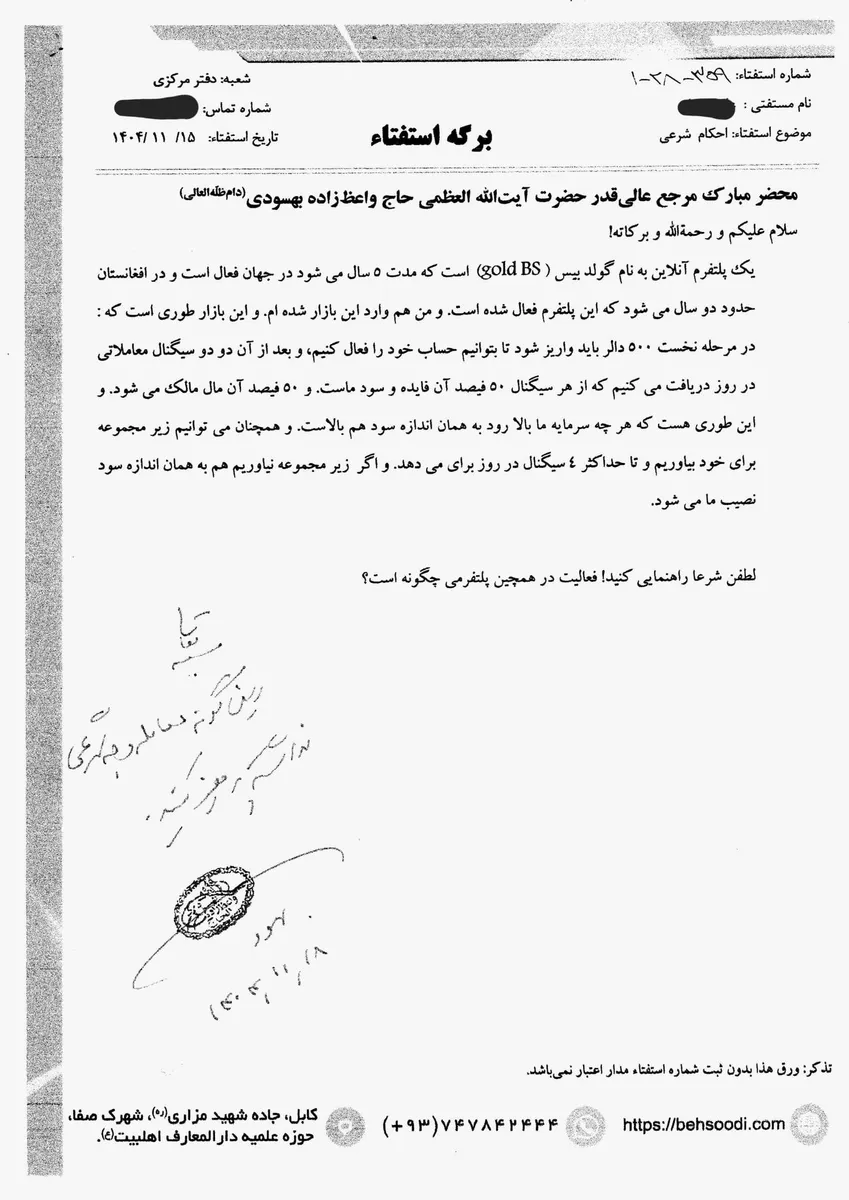 شماره استفتاء: ۳۵۹-۲۸-۱
نام مستفتی :
موضوع استفتاء: احکام شرعی
برگه استفتاء
شعبه: دفتر مرکزی
شماره تماس:
تاریخ استفتاء: ۱۵/ ۱۱ /۱۴۰۴
محضر مبارک مرجع عالی‌قدر حضرت آیت‌الله العظمی حاج واعظ‌زاده بهسودی(دام‌ظله‌العالی)
سلام علیکم و رحمةالله و برکاته!
یک پلتفرم آنلاین به نام گولد بیس ( gold BS) است که مدت ۵ سال می شود در جهان فعال است و در افغانستان
حدود دو سال می شود که این پلتفرم فعال شده است. و من هم وارد این بازار شده ام. و این بازار طوری است که :
در مرحله نخست ۵۰۰ دالر باید واریز شود تا بتوانیم حساب خود را فعال کنیم، و بعد از آن دو دو سیگنال معاملاتی
در روز دریافت می کنیم که از هر سیگنال ۵۰ فیصد آن فایده و سود ماست. و ۵۰ فیصد آن مال مالک می شود. و
این طوری هست که هر چه سرمایه ما بالا رود به همان اندازه سود هم بالاست. و همچنان می توانیم زیر مجموعه
برای خود بیاوریم و تا حداکثر ٤ سیگنال در روز برای می دهد. و اگر زیر مجموعه نیاوریم هم به همان اندازه سود
نصیب ما می شود.
لطفن شرعا راهنمایی کنید! فعالیت در همچین پلتفرمی چگونه است؟
بسمه تعالی
اینگونه معامله وجه شرعی
نداشته پرهیز کنید.
تذکر: ورق هذا بدون ثبت شماره استفتاء مدار اعتبار نمی‌باشد.
https://behsoodi.com
(+۹۳)۷۴۷۸۴۲۴۴۴
کابل، جاده شهید مزاری(ره)، شهرک صفا،
حوزه علمیه دارالمعارف اهلبیت(ع).